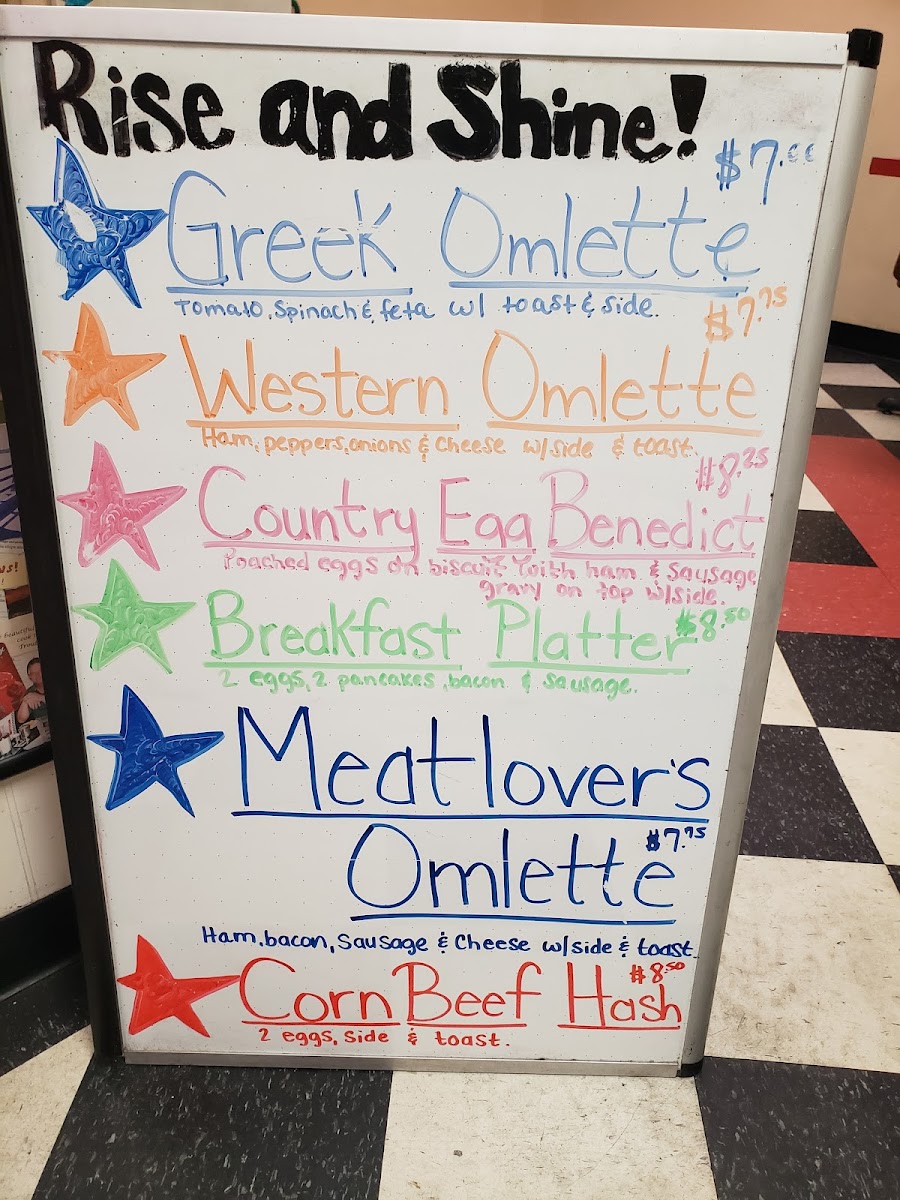 Rise and Shine!
$7.00
Greek Omlette
Tomato, Spinach & feta w/ toast & side.
$7.75
Western Omlette
Ham, peppers, onions & Cheese w/side & toast.
$8.25
Country Egg Benedict
Poached eggs on biscuit with ham & Sausage
gravy on top w/side.
Breakfast Platter $8.50
2 eggs, 2 pancakes, bacon & sausage.
Meatlover's
Omlette $7.75
Ham, bacon, Sausage & Cheese w/side & toast.
Corn Beef Hash $8.50
2 eggs, Side & toast.